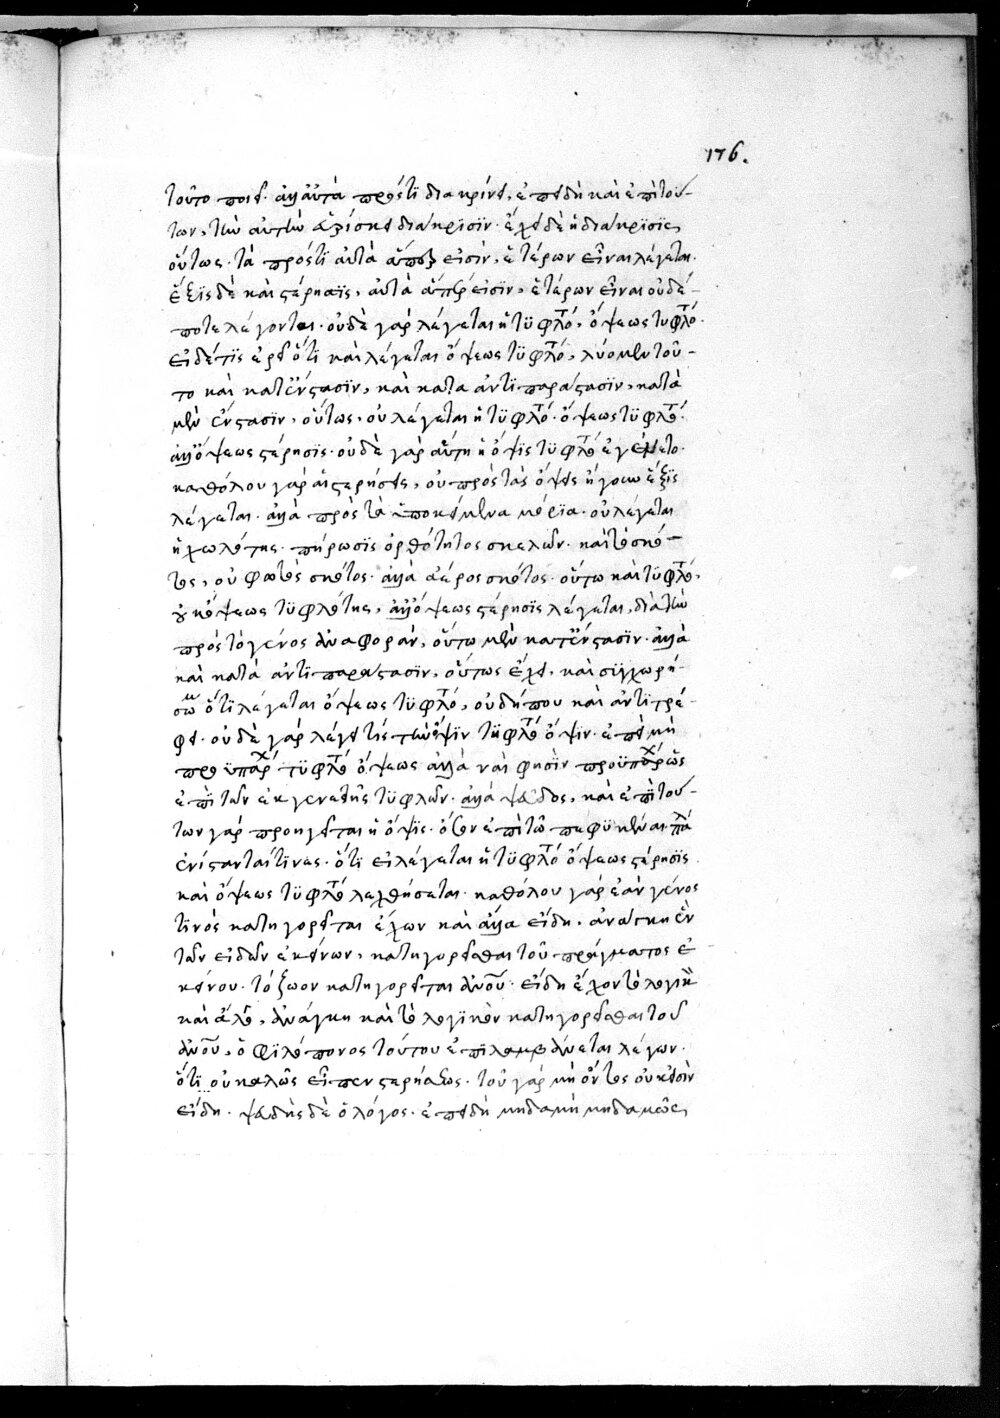 176.
τοῦτο ποιεῖ. ἀλλ' αὐτὰ πρόστι διακρίνει, ἐπειδὴ καὶ ἐπὶ τού-
των, τὴν αὐτὴν εὑρίσκει διάκρισιν. ἔχει δὲ ἡ διάκρισις,
οὕτως. τὰ πρόστι αὐτὰ ἅπερ εἰσὶν, ἑτέρων εἶναι λέγεται.
ἕξις δὲ καὶ στέρησις, αὐτὰ ἅπερ εἰσὶν, ἑτέρων εἶναι οὐδέ-
ποτε λέγονται. οὐδὲ γὰρ λέγεται ἡ τυφλότ, ὄψεως τυφλότ.
εἰ δέ τις ἐρεῖ ὅτι καὶ λέγεται ὄψεως τυφλότ, λύομεν τοῦ-
το καὶ κατ' ἔνστασιν, καὶ κατα ἀντιπαράστασιν, κατὰ
μὲν ἔνστασιν, οὕτως, οὐ λέγεται ἡ τυφλότ. ὄψεως τυφλότ.
ἀλλ' ὄψεως στέρησις. οὐδὲ γὰρ αὕτη ἡ ὄψις τυφλότ ἐγένετο.
καθόλου γὰρ αἱ στερήσεις, οὐ πρὸς τὰς ὄψεις ἤγουν ἕξις
λέγεται. ἀλλὰ πρὸς τὰ ὑποκείμενα μόρια. οὐ λέγεται
ἡ χωλότης. πήρωσις ὀρθότητος σκελῶν. καὶ τὸ σκό-
τος, οὐ φωτὸς σκότος. ἀλλὰ ἀέρος σκότος. οὕτω καὶ τυφλότ,
οὐκ ὄψεως τυφλότης, ἀλλ' ὄψεως στέρησις λέγεται, διὰ τὴν
πρὸς τὸ γένος ἀναφοράν, οὕτω μὲν κατ' ἔνστασιν. ἀλλὰ
καὶ κατὰ ἀντιπαράστασιν, οὕτως ἔχει, καὶ συγχωρή-
σωμ ὅτι λέγεται ὄψεως τυφλό, οὐδήπου καὶ ἀντιστρέ-
φει. οὐδὲ γὰρ λέγει τίς τὴν ὄψιν τυφλότ ὄψιν. ἐπεὶ μὴ
προυπάρχ τυφλότ ὄψεως ἀλλὰ ναὶ φησὶν προϋπάρχ ὡς
ἐπὶ τῶν ἐκ γενετῆς τυφλῶν. ἀλλὰ ψεῦδος, καὶ ἐπὶ τού-
των γὰρ προηγεῖται ἡ ὄψις. ὅθεν ἐπὶ τῶ πεφυκέναι
ἐνίστανταί τινες. ὅτι εἰ λέγεται ἡ τυφλότ ὄψεως στέρησις
καὶ ὄψεως τυφλότ λεχθήσεται. καθόλου γὰρ ἐὰν γένος
τινὸς κατηγορεῖται ἔχων καὶ ἄλλα εἴδη, ἀνάγκη ἓν
τῶν εἰδῶν ἐκείνων, κατηγορεῖσθαι τοῦ πράγματος ἐ-
κείνου. τὸ ζῶον κατηγορεῖται ἀνου. εἴδη ἔχον τὸ λογικὸν
καὶ ἄλογ, ἀνάγκη καὶ τὸ λογικὸν κατηγορεῖσθαι τοῦ
ἀνου, ὁ φιλόπονος τούτου ἐπιλαμβάνεται λέγων.
ὅτι οὐ καλῶς εἶπεν στερήσεως. τοῦ γὰρ μὴ ὄντος οὐκ εἰσὶν
εἴδη. ψευδὴς δὲ ὁ λόγος. ἐπειδὴ μηδαμὴ μηδαμῶς